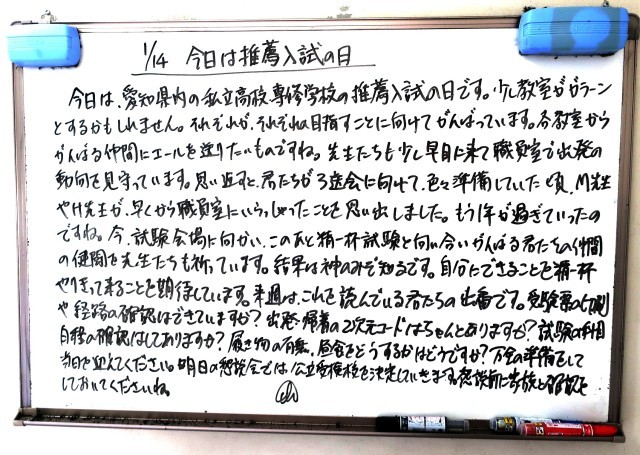 1/14 今日は推薦入試の日
今日は、愛知県内の私立高校、専修学校の推薦入試の日です。少し教室がガラーン
とするかもしれません。それぞれが、それぞれの目指すことに向けてがんばっています。各教室から
がんばる仲間にエールを送りたいものですね。先生たちも少し早目に来て職員室で出発の
動向を見守っています。思い返すと、君たちが3送会に向けて、色々準備していた頃、M先生
やH先生が、早くから職員室にいらっしゃったことを思い出しました。もう1年が過ぎていったの
ですね。今、試験会場に向かい、このあと精一杯試験と向い合いがんばる君たちの仲間
の健闘を先生たちも祈っています。結果は神のみぞ知るです。自分にできることを精一杯
やりきって来ることを期待しています。来週は、これを読んでいる君たちの出番です。受験票の
や経路の確認はできていますか？出発・帰着の2次元コードはちゃんとありますか？試験の時間
日程の確認はしてありますか？履き物の有無、昼食をどうするかはどうですか？万全の準備をして
当日を迎えてください。明日の懇談会では公立受検校を決定していきます。懇談前に家族と確認を
しておいてくださいね。